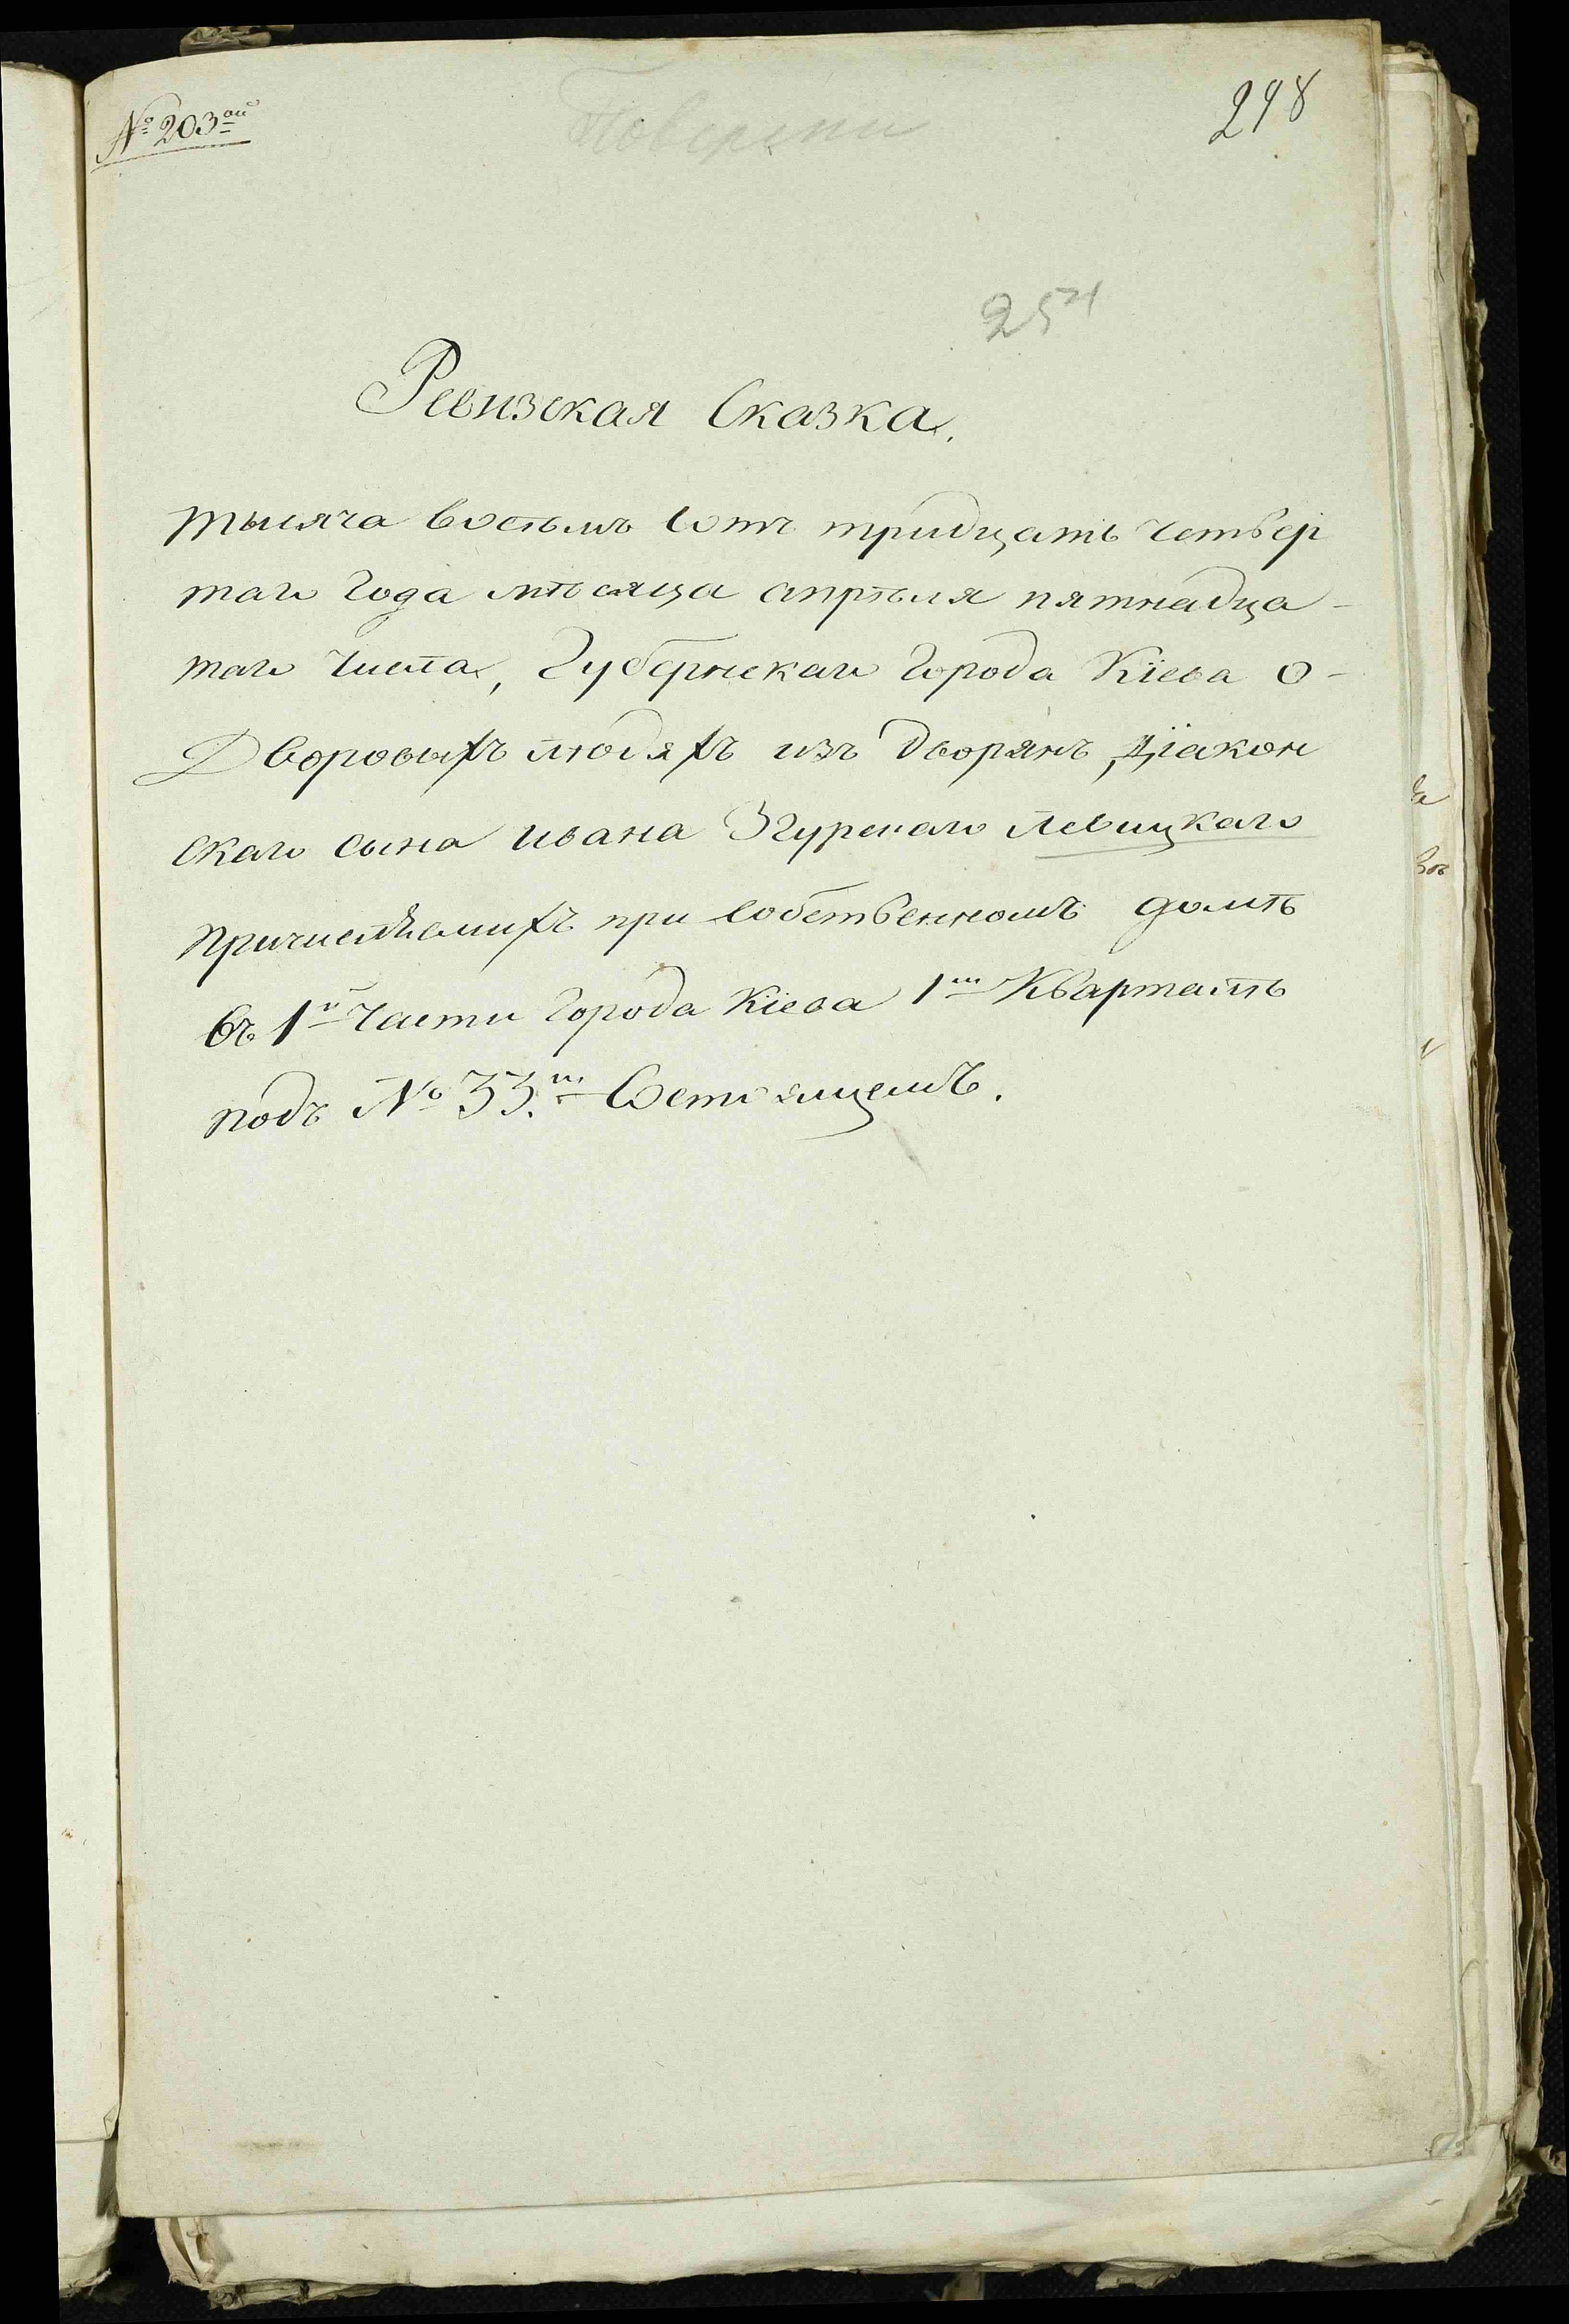 № 203ой
Поверены
298
254
Ревизская Сказка.
тысяча восемь сотъ тридцать четвер
таго года мѣсяца апрѣля пятнадца-
таго числа, Губернскаго города Кіева о-
Дворовыхъ людяхъ изъ дворянъ, Діакон
скаго сына ивана Згурскаго Левицкаго
причисляемихъ при собственномъ домѣ
въ 1й Части города Кіева 1м Кварталѣ
подъ № 33.м Состоящемъ.